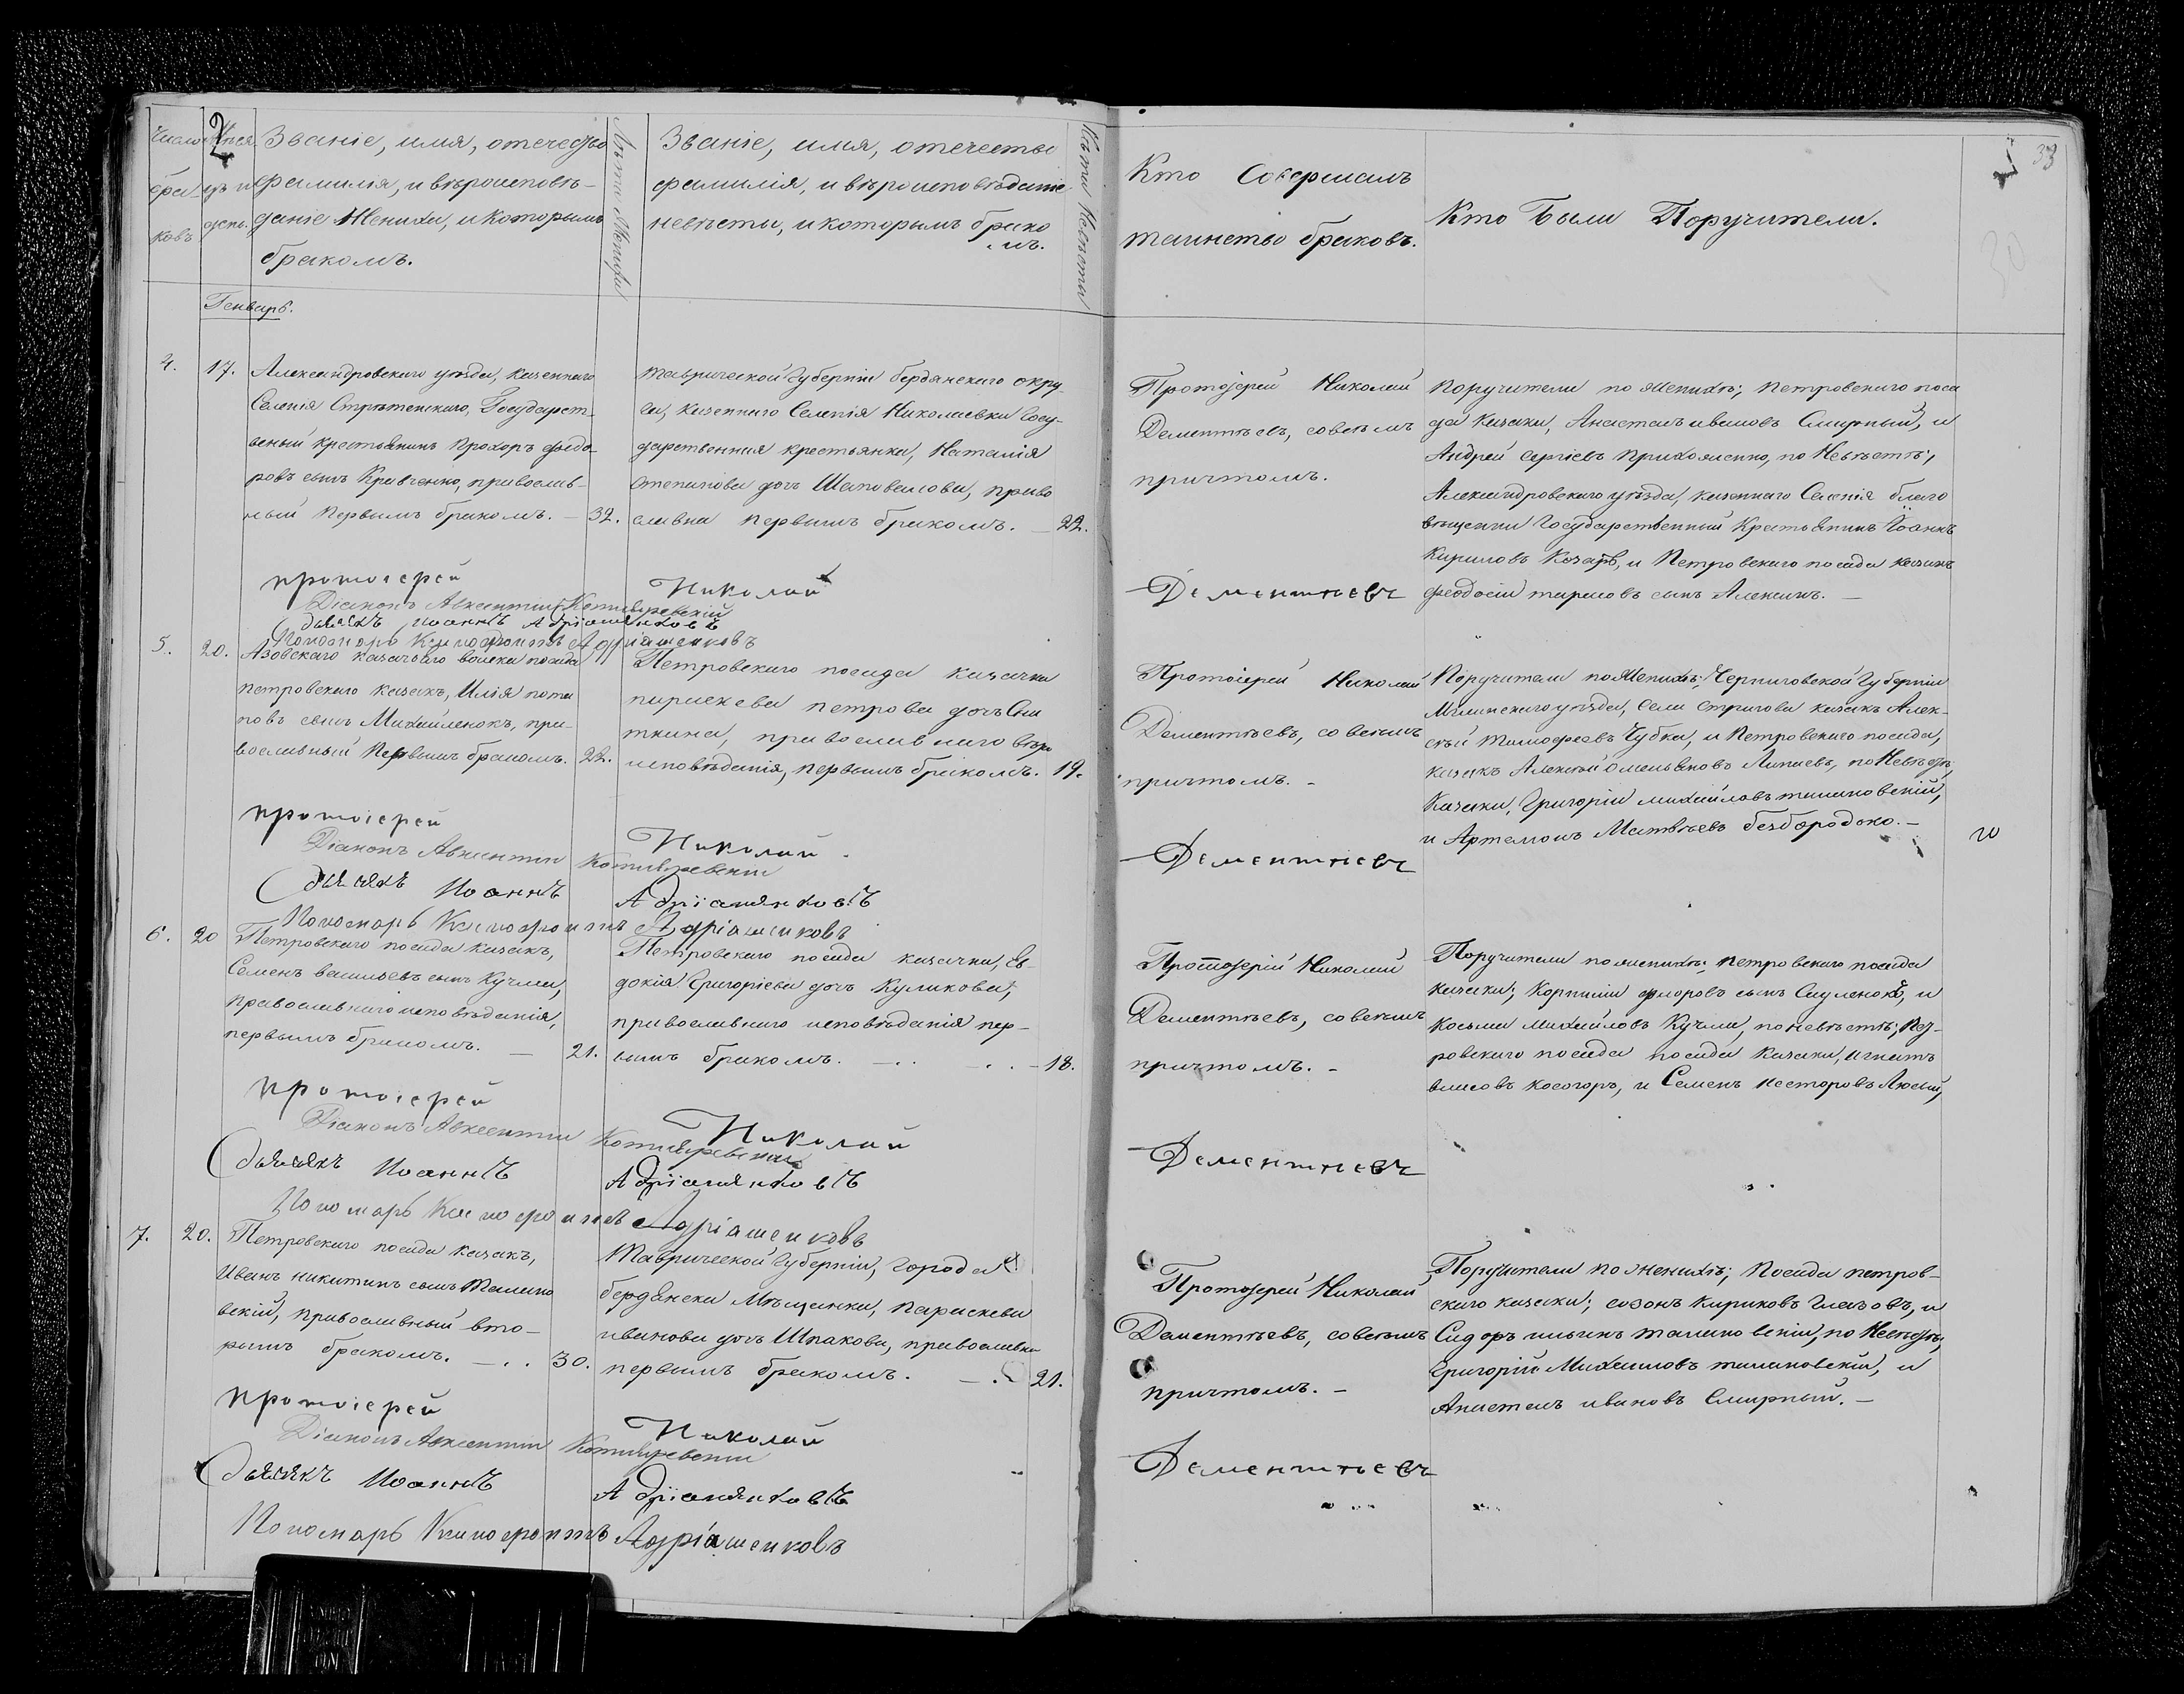 2
33
30
Число браковъ
Мѣсяцъ и день.
Званіе, имя, отечество
фамилія, и вѣроисповѣ-
даніе Жениха, и которымъ
бракомъ.
Лѣта Жениха
Званіе, имя, отечество
фамилія, и вѣроисповѣданіе
невѣсты, и которымъ брако
мъ.
Лѣта Невѣсты
Кто Совершалъ
таинство браковъ.
Кто Были Поручители.
Генварь.
4.
17.
Александровскаго уѣзда, казеннаго
Селенія Стрѣтенскаго, Государст-
веный крестьянинъ Прохоръ федо-
ровъ сынъ Кравченко, православ-
ный Первымъ бракомъ. — 32.
таврической Губерніи бердянскаго окру
га, казеннаго Селенія Николаевки Госу-
дарственная крестьянка, Наталія
Степанова дочь Шаповалова, право
славна первымъ бракомъ. — 22.
Протоіерей Николай
Дементьевъ, совсѣмъ
причтомъ.
поручители по женихѣ; петровскаго поса
да казаки, Анастасъ ивановъ Смирный, и
Андрей сергіевъ Приходженко, по Невѣстѣ;
Александровскаго уѣзда, казеннаго Селенія благо
вѣщенки Государственный Крестьянинъ Іоаннъ
Кириловъ Козарь, и Петровскаго посада казакъ
феодосій тарасовъ сынъ Алексинъ. —
протоіерей Николай Дементьевъ
Діаконъ Авксентій Котляревскій
дьячекъ Иоаннъ Адріашенковъ
Пономарь Ксенофонтъ Адріашенковъ
5.
20.
Азовскаго казачьяго войска посада
петровскаго казакъ, Илія пота
повъ сынъ Михайленокъ, пра-
вославный Первымъ бракомъ. 22.
Петровскаго посада казачка
параскева петрова дочь Сни
ткина, православнаго вѣро
исповѣданія, первымъ бракомъ. 19.
Протоіерей Николай
Дементьевъ, совсѣмъ
причтомъ. —
Поручители по Женихѣ; Черниговской Губерніи
Мглинскаго уѣзда, села стригова казакъ Алек-
сѣй тимофеевъ Чубка, и Петровскаго посада,
казакъ Алексѣй Омельяновъ Липаевъ, по Невѣстѣ,
Казаки, Григорій михайловъ талановскій,
и Артемонъ Матвѣевъ безбородько. —
протоіерей Николай Дементьевъ
Діаконъ Авксентій Котляревскій
дьячекъ Иоаннъ Адріашенковъ
Пономарь Ксенофонтъ Адріашенковъ
6.
20
Петровскаго посада казакъ,
Семенъ васильевъ сынъ Кучма,
православнаго исповѣданія,
первымъ бракомъ. — 21.
Петровскаго посада казачка, Ев-
докія Григоріева дочь Куликова,
православнаго исповѣданія пер-
вымъ бракомъ. — 18.
Протоіерій Николай
Дементьевъ, совсѣмъ
причтомъ. —
Поручители по женихѣ; петровскаго посада
казаки; Корнилій флоровъ сынъ Сауленокъ, и
Косьма Михайловъ Кучма, по невѣстѣ; Пет-
ровскаго посада посада казаки, игнатъ
власовъ косогоръ, и Семенъ несторовъ Лысый,
протоіерей Николай Дементьевъ
Діаконъ Авксентій Котляревскій
дьячекъ Иоаннъ Адріашенковъ
Пономарь Ксенофонтъ Адріашенковъ
7.
20.
Петровскаго посада казакъ,
Иванъ никитинъ сынъ Талано
вскій, православный вто-
рымъ бракомъ. — 30.
таврической Губерніи, города
бердянска Мѣщанка, параскева
иванова дочь Шпакова, православна
первымъ бракомъ. — 21.
Протоіерей Николай
Дементьевъ, совсѣмъ
причтомъ. —
Поручители по женихѣ; Посада петров-
скаго казаки; созонъ Кириковъ Глазовъ, и
Сидоръ ильинъ талановскій, по Невѣстѣ,
Григорій Михайловъ талановскій, и
Анастасъ ивановъ Смирный. —
протоіерей Николай Дементьевъ
Діаконъ Авксентій Котляревскій
дьячекъ Иоаннъ Адріашенковъ
Пономарь Ксенофонтъ Адріашенковъ